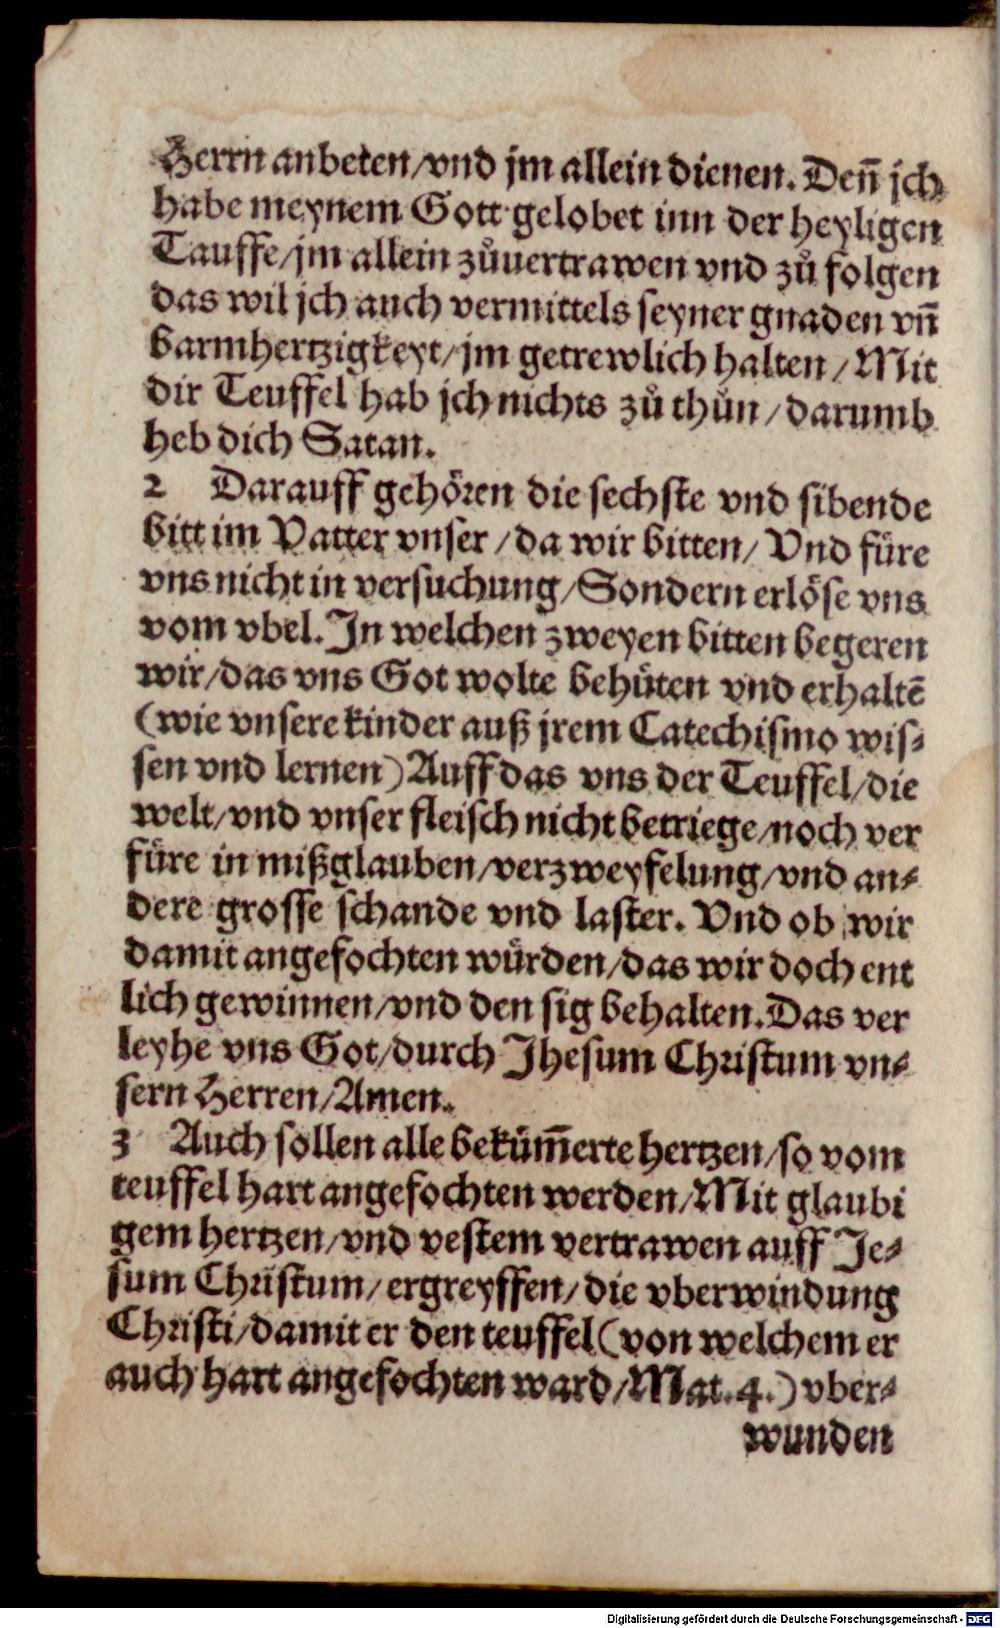 Herrn anbeten/vnd jm allein dienen. Deñ jch
habe meynem Gott gelobet inn der heyligen
Tauffe/jm allein zůuertrawen vnd zů folgen
das wil jch auch vermittels seyner gnaden vñ
barmhertzigkeyt/jm getrewlich halten/Mit
dir Teuffel hab jch nichts zů thůn/darumb
heb dich Satan.
2 Darauff gehören die sechste vnd sibende
bitt im Vatter vnser/da wir bitten/Vnd füre
vns nicht in versuchung/Sondern erlöse vns
vom vbel. In welchen zweyen bitten begeren
wir/das vns Got wolte behüten vnd erhaltē
(wie vnsere kinder auß jrem Catechismo wis⸗
sen vnd lernen) Auff das vns der Teuffel/die
welt/vnd vnser fleisch nicht betriege/noch ver
füre in mißglauben/verzweyfelung/vnd an⸗
dere grosse schande vnd laster. Vnd ob wir
damit angefochten würden/das wir doch ent
lich gewinnen/vnd den sig behalten. Das ver
leyhe vns Got/durch Jhesum Christum vn⸗
sern Herren/Amen.
3 Auch sollen alle bekům̃erte hertzen/so vom
teuffel hart angefochten werden/Mit glaubi
gem hertzen/vnd vestem vertrawen auff Je⸗
sum Christum/ergreyffen/die vberwindung
Christi/damit er den teuffel (von welchem er
auch hart angefochten ward/Mat. 4.) vber⸗
wunden
Digitalisierung gefördert durch die Deutsche Forschungsgemeinschaft - DFG